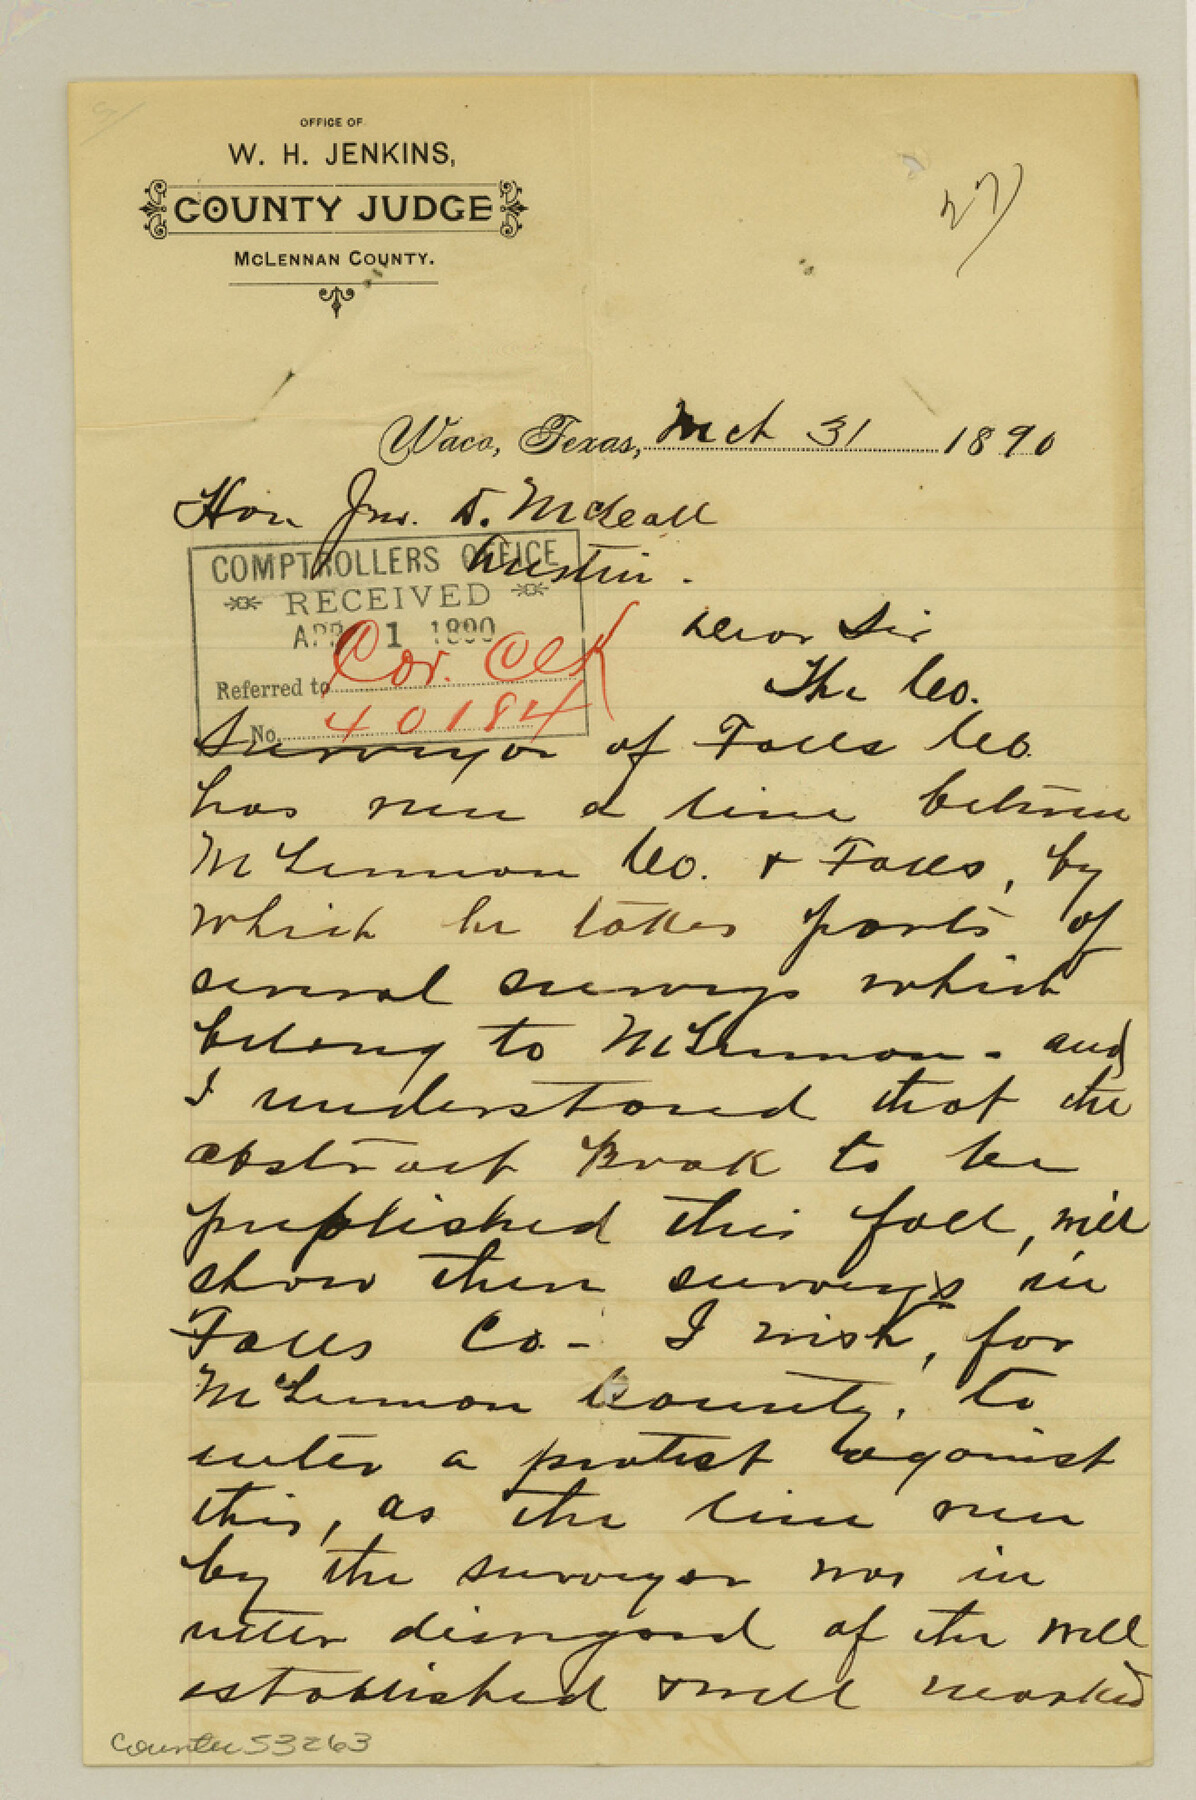 OFFICE OF
W. H. JENKINS,
COUNTY JUDGE
McLENNAN COUNTY.
27)
Waco, Texas, Mch 31 1890
Hon Jno. D. McCall
Austin.
COMPTROLLERS OFFICE
RECEIVED
APR 1 1890
Referred to Cor. Clk
No. 40184
Dear Sir
The Co.
Surveyor of Falls Co.
has run a line between
McLennan Co. & Falls, by
which he takes parts of
several surveys which
belong to McLennan - and
I understand that the
abstract Book to be
published this fall, will
show them surveys in
Falls Co. - I wish, for
McLennan County, to
enter a protest against
this, as the line run
by the surveyor was in
utter disregard of the well
established & well marked
Counter 53263